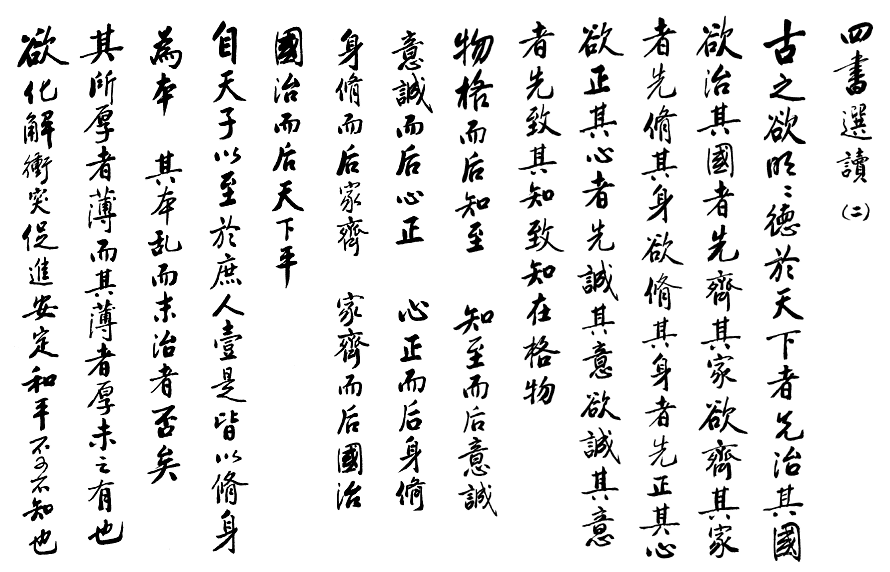 四書選讀（二）
古之欲明明德於天下者先治其國
欲治其國者先齊其家欲齊其家
者先脩其身欲脩其身者先正其心
欲正其心者先誠其意欲誠其意
者先致其知致知在格物
物格而后知至 知至而后意誠
意誠而后心正 心正而后身脩
身脩而后家齊 家齊而后國治
國治而后天下平
自天子以至於庶人壹是皆以脩身
為本 其本乱而末治者否矣
其所厚者薄而其薄者厚未之有也
欲化解衝突促進安定和平不可不知也